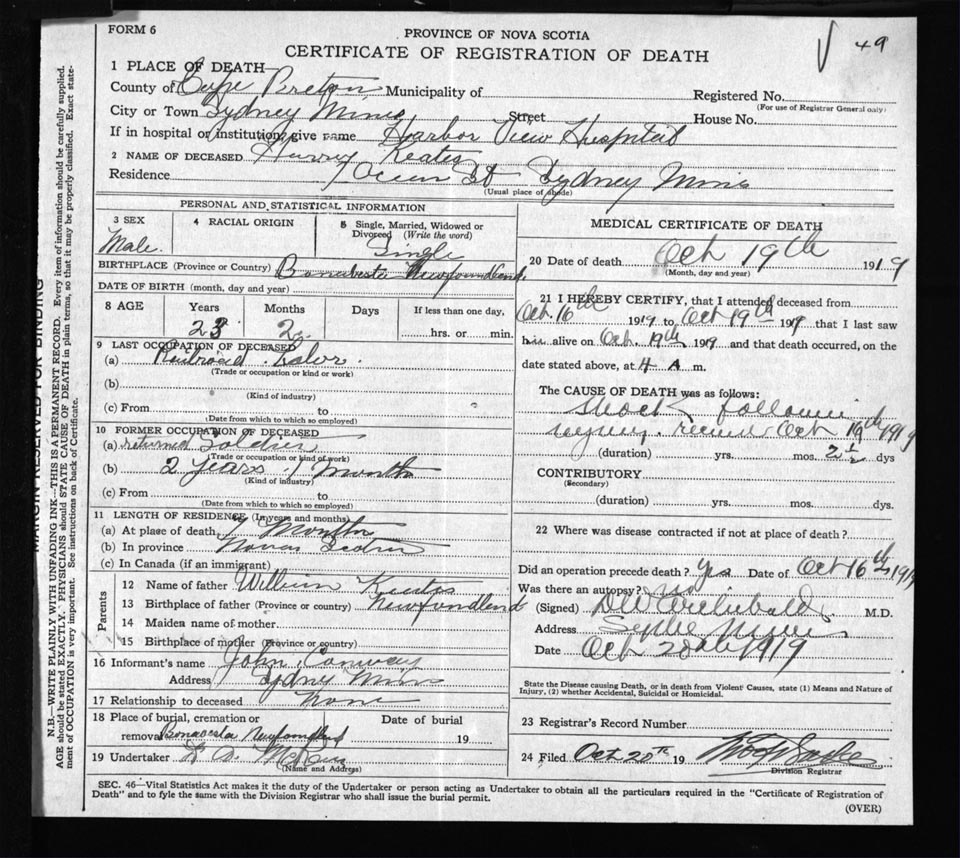 FORM 6
PROVINCE OF NOVA SCOTIA
CERTIFICATE OF REGISTRATION OF DEATH
49
1 PLACE OF DEATH
County of Cape Breton Municipality of
Registered No.
(For use of Registrar General only)
City or Town Sydney Mines Street
House No.
If in hospital or institution, give name Harbor View Hospital
2 NAME OF DECEASED Harvey Keates
Residence Ocean St Sydney Mines
(Usual place of abode)
PERSONAL AND STATISTICAL INFORMATION
3 SEX
Male.
4 RACIAL ORIGIN
5 Single, Married, Widowed or Divorced (Write the word)
Single
BIRTHPLACE (Province or Country) Bonavista Newfoundland
DATE OF BIRTH (month, day and year)
8 AGE Years Months Days If less than one day,
23 2 hrs. or min.
9 LAST OCCUPATION OF DECEASED
(a) Railroad Labor
(Trade or occupation or kind or work)
(b)
(Kind of industry)
(c) From to
(Date from which to which so employed)
10 FORMER OCCUPATION OF DECEASED
(a) returned Soldier
(Trade or occupation or kind of work)
(b) 2 years 1 months
(Kind of industry)
(c) From to
(Date from which to which so employed)
11 LENGTH OF RESIDENCE (In years and months)
(a) At place of death Months
(b) In province Nova Scotia
(c) In Canada (if an immigrant)
Parents
12 Name of father William Keates
13 Birthplace of father (Province or country) Newfoundland
14 Maiden name of mother
15 Birthplace of mother (Province or country)
16 Informant's name John Conway
Address Sydney Mines
17 Relationship to deceased None
18 Place of burial, cremation or removal Bonavista Newfoundland
Date of burial 19
19 Undertaker
(Name and Address)
MEDICAL CERTIFICATE OF DEATH
20 Date of death Oct 19th 1919
(Month, day and year)
21 I HEREBY CERTIFY, that I attended deceased from
Oct. 16th 1919 to Oct 19th 1919 that I last saw
him alive on Oct. 19th 1919 and that death occurred, on the
date stated above, at 4 A m.
The CAUSE OF DEATH was as follows:
Shock following
injury. received Oct 1919
(duration) yrs. mos. 2 1/2 dys
CONTRIBUTORY
(Secondary)
(duration) yrs. mos. dys.
22 Where was disease contracted if not at place of death?
Did an operation precede death? Yes Date of Oct 16th 1919
Was there an autopsy? No
(Signed) D W Archibald M.D.
Address Sydney Mines
Date Oct 20th 1919
State the Disease causing Death, or in death from Violent Causes, state (1) Means and Nature of
Injury, (2) whether Accidental, Suicidal or Homicidal.
23 Registrar's Record Number
24 Filed Oct 20th 19
Division Registrar
SEC. 46—Vital Statistics Act makes it the duty of the Undertaker or person acting as Undertaker to obtain all the particulars required in the "Certificate of Registration of
Death" and to fyle the same with the Division Registrar who shall issue the burial permit.
(OVER)
MARGIN RESERVED FOR BINDING
N.B.—WRITE PLAINLY WITH UNFADING INK—THIS IS A PERMANENT RECORD. Every item of information should be carefully supplied.
AGE should be stated EXACTLY. PHYSICIANS should STATE CAUSE OF DEATH in plain terms, so that it may be properly classified. Exact state-
ment of OCCUPATION is very important. See instructions on back of Certificate.